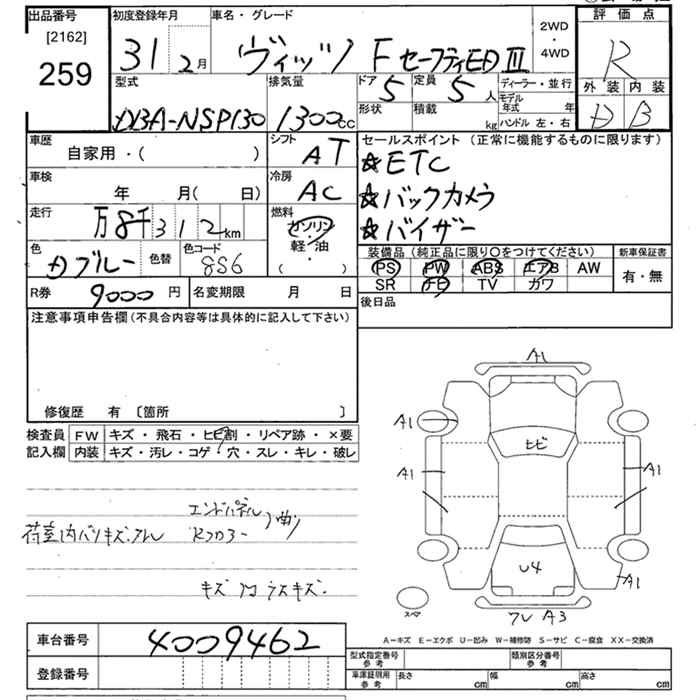 出品番号
[2162]
259
初度登録年月
31年 2月
車名・グレード
ヴィッツ F セーフティED Ⅲ
2WD
・
4WD
評価点
R
外装 内装
D B
型式
DBA-NSP130
排気量
1300cc
ドア 5
定員 5人
ディーラー・並行
形状
積載 kg
モデル年式 年
ハンドル 左・右
車歴
自家用・( )
シフト
AT
車検
年 月( 日)
冷房
AC
走行
万8千312km
燃料
ガソリン
軽・油
( ・ )
色
ブルー
色替
色コード
8S6
R券 9000円
名変期限 月 日
セールスポイント (正常に機能するものに限ります)
☆ETC
☆バックカメラ
☆バイザー
装備品 (純正品に限り○をつけてください)
新車保証書
PS PW ABS エアB AW
SR TV カワ
有・無
後日品
注意事項申告欄 (不具合内容等は具体的に記入して下さい)
修復歴 有 〔箇所 〕
検査員記入欄
FW キズ・飛石・ヒビ割・リペア跡・×要
内装 キズ・汚レ・コゲ・穴・スレ・キレ・破レ
エンドパネル
曲
荷室内
キズ
A1
A1
ヒビ
A1
A1
U4
A1
スペア
A3
A-キズ E-エクボ U-凹み W-補修跡 S-サビ C-腐食 XX-交換済
車台番号
4009462
登録番号
型式指定番号 参考
類別区分番号 参考
車庫証明用 参考
長さ cm
幅 cm
高さ cm